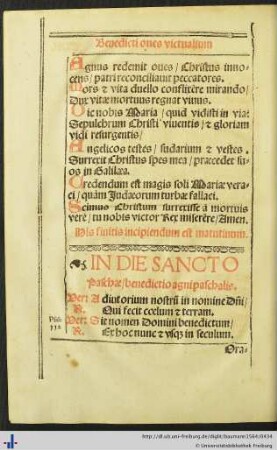 Benedicti oues victualium
Agnus redemit oues/ Christus inno-
cens/ patri reconciliauit peccatores.
Mors & vita duello conflixere mirando/
Dux vitæ mortuus regnat viuus.
Dic nobis Maria/ quid vidisti in via:
Sepulchrum Christi viuentis/ & gloriam
vidi resurgentis/
Angelicos testes/ sudarium & vestes.
Surrexit Christus spes mea/ præcedet su-
os in Galilæa.
Credendum est magis soli Mariæ vera-
ci/ quàm Judæorum turbæ fallaci.
Scimus Christum surrexisse à mortuis
verè/ tu nobis victor Rex miserère/ Amen.
His finitis incipiendum est matutinum.
IN DIE SANCTO
Paschæ/ benedictio agni paschalis.
Ver: Adiutorium nostrũ in nomine Dñi/
R. Qui fecit cœlum & terram.
Ver: Sit nomen Domini benedictum/
R. Et hoc nunc & vsq; in seculum.
Ora-
http://dl.ub.uni-freiburg.de/diglit/baumann1564/0454
© Universitätsbibliothek Freiburg